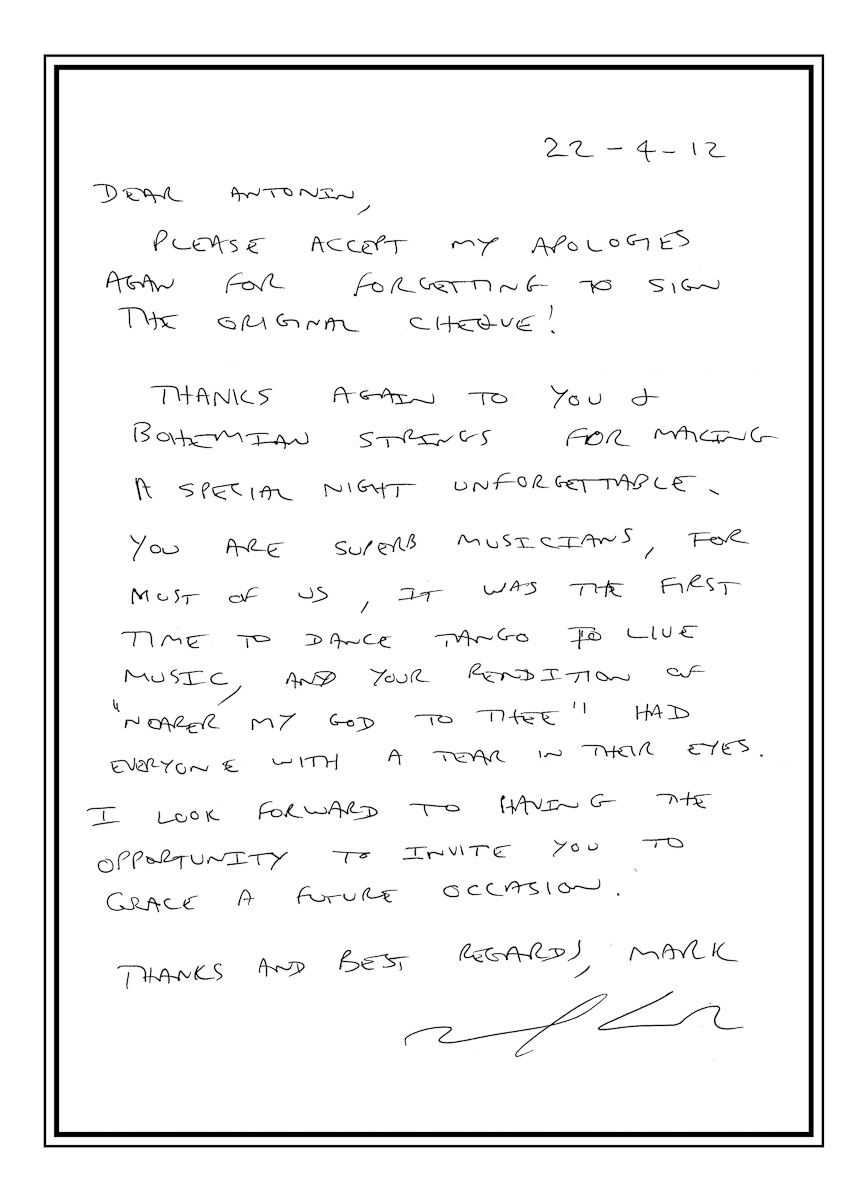 22-4-12
DEAR ANTONIN,
PLEASE ACCEPT MY APOLOGIES
AGAN FOR FORGETTING TO SIGN
THE ORIGINAL CHEQUE!
THANKS AGAIN TO YOU &
BOHEMIAN STRINGS FOR MAKING
A SPECIAL NIGHT UNFORGETTABLE.
YOU ARE SUPERB MUSICIANS, FOR
MOST OF US, IT WAS THE FIRST
TIME TO DANCE TANGO TO LIVE
MUSIC, AND YOUR RENDITION OF
"NEARER MY GOD TO THEE" HAD
EVERYONE WITH A TEAR IN THEIR EYES.
I LOOK FORWARD TO HAVING THE
OPPORTUNITY TO INVITE YOU TO
GRACE A FUTURE OCCASION.
THANKS AND BEST REGARDS, MARK